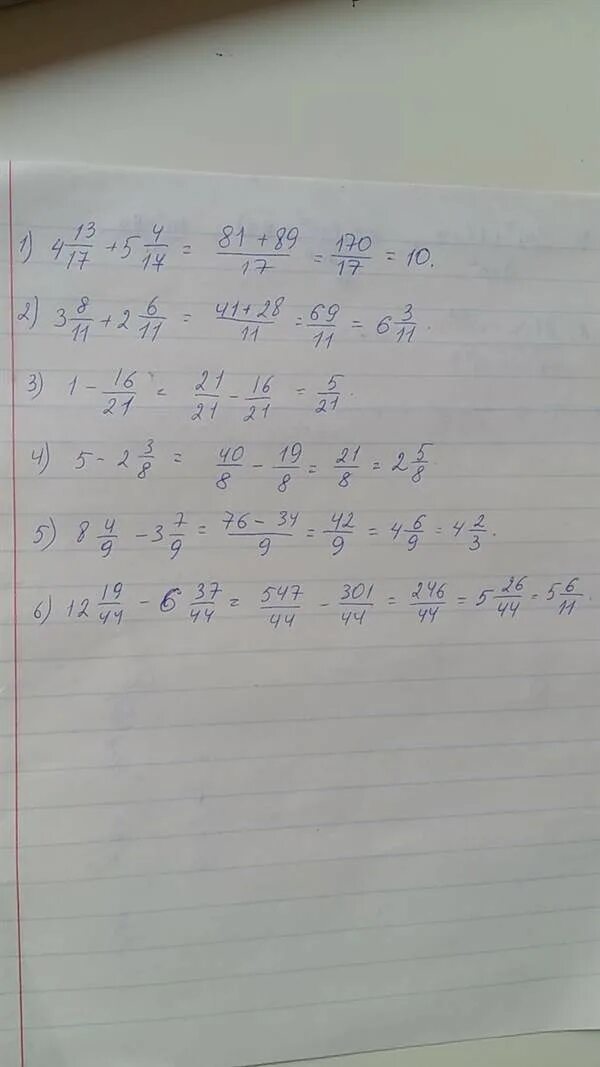 1) 4 13/17 + 5 4/17 = (81 + 89)/17 = 170/17 = 10.
2) 3 8/11 + 2 6/11 = (41 + 28)/11 = 69/11 = 6 3/11.
3) 1 - 16/21 = 21/21 - 16/21 = 5/21.
4) 5 - 2 3/8 = 40/8 - 19/8 = 21/8 = 2 5/8.
5) 8 4/9 - 3 7/9 = (76 - 34)/9 = 42/9 = 4 6/9 = 4 2/3.
6) 12 19/44 - 6 37/44 = 547/44 - 301/44 = 246/44 = 5 26/44 = 5 6/11.